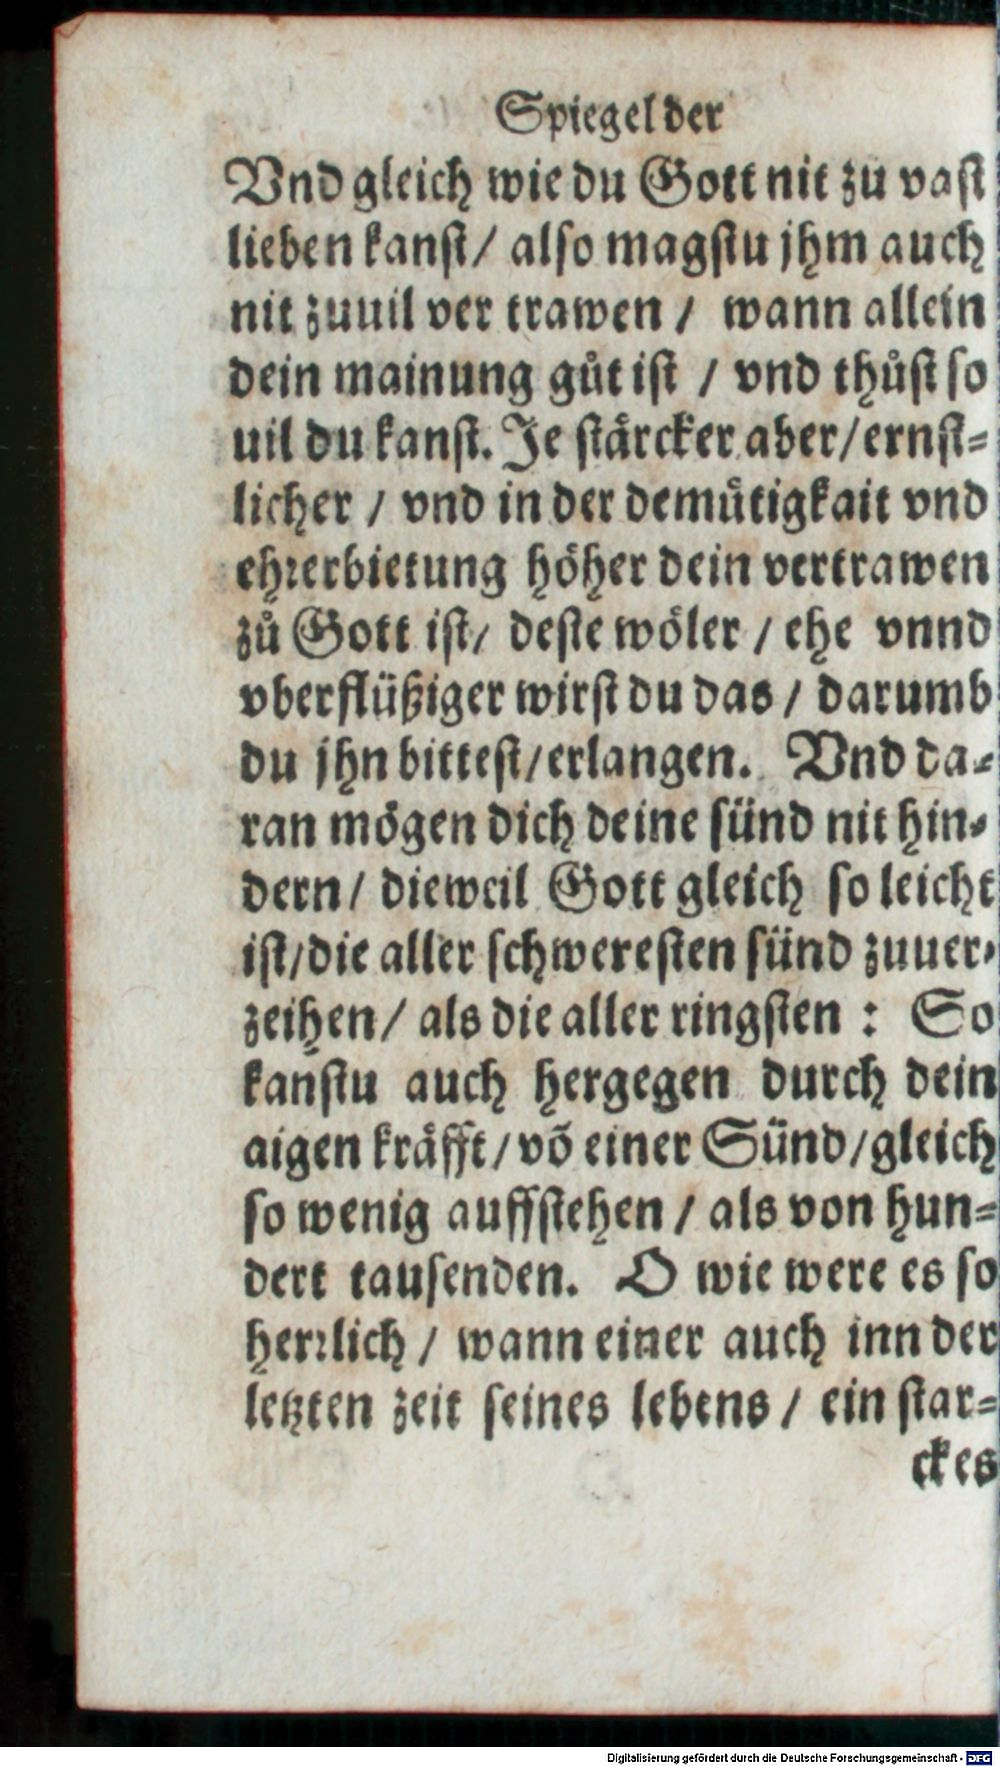 Spiegel der
Vnd gleich wie du Gott nit zu vast
lieben kanst/ also magstu jhm auch
nit zuuil ver trawen / wann allein
dein mainung gůt ist / vnd thůst so
uil du kanst. Je stärcker aber/ernst=
licher / vnd in der demütigkait vnd
ehrerbietung höher dein vertrawen
zů Gott ist/ deste wöler / ehe vnnd
vberflüßiger wirst du das / darumb
du jhn bittest/erlangen. Vnd da=
ran mögen dich deine sünd nit hin=
dern/ dieweil Gott gleich so leicht
ist/die aller schweresten sünd zuuer=
zeihen/ als die aller ringsten : So
kanstu auch hergegen durch dein
aigen kräfft/võ einer Sünd/gleich
so wenig auffstehen / als von hun=
dert tausenden. O wie were es so
herrlich / wann einer auch inn der
letzten zeit seines lebens / ein star=
ckes
Digitalisierung gefördert durch die Deutsche Forschungsgemeinschaft - DFG